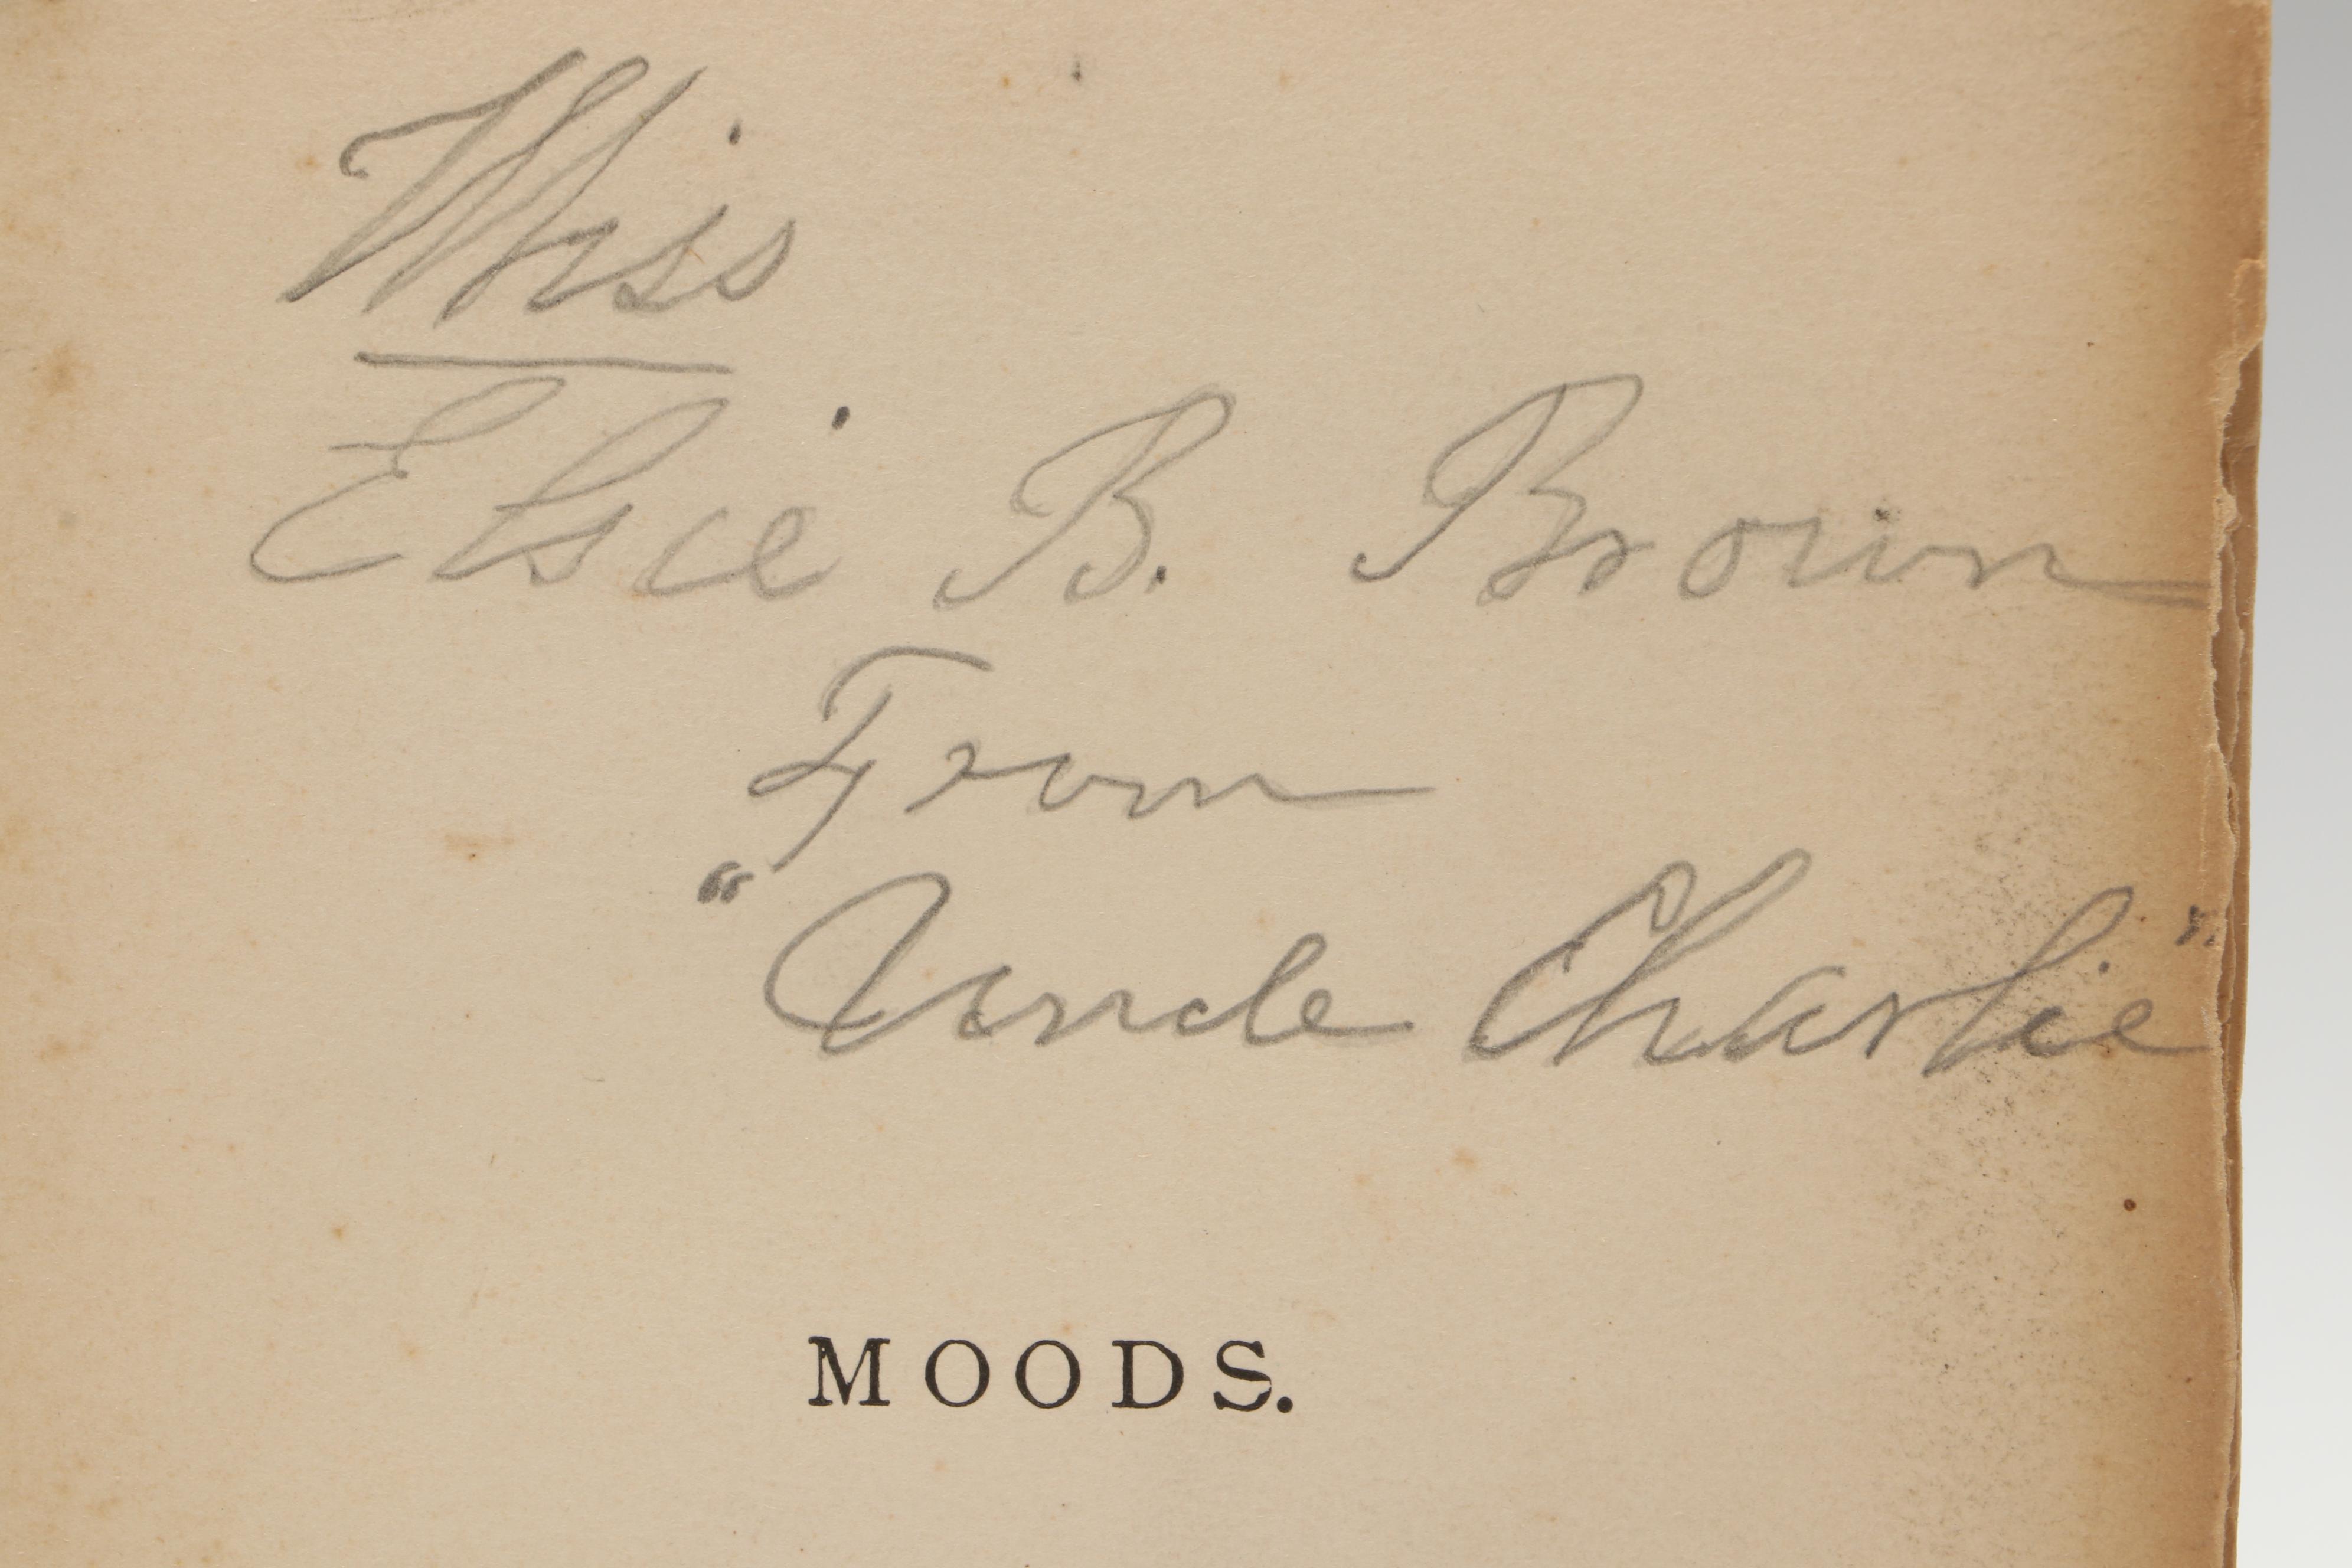 Miss
Elsie B. Brown
From
"Uncle Charlie".
MOODS.